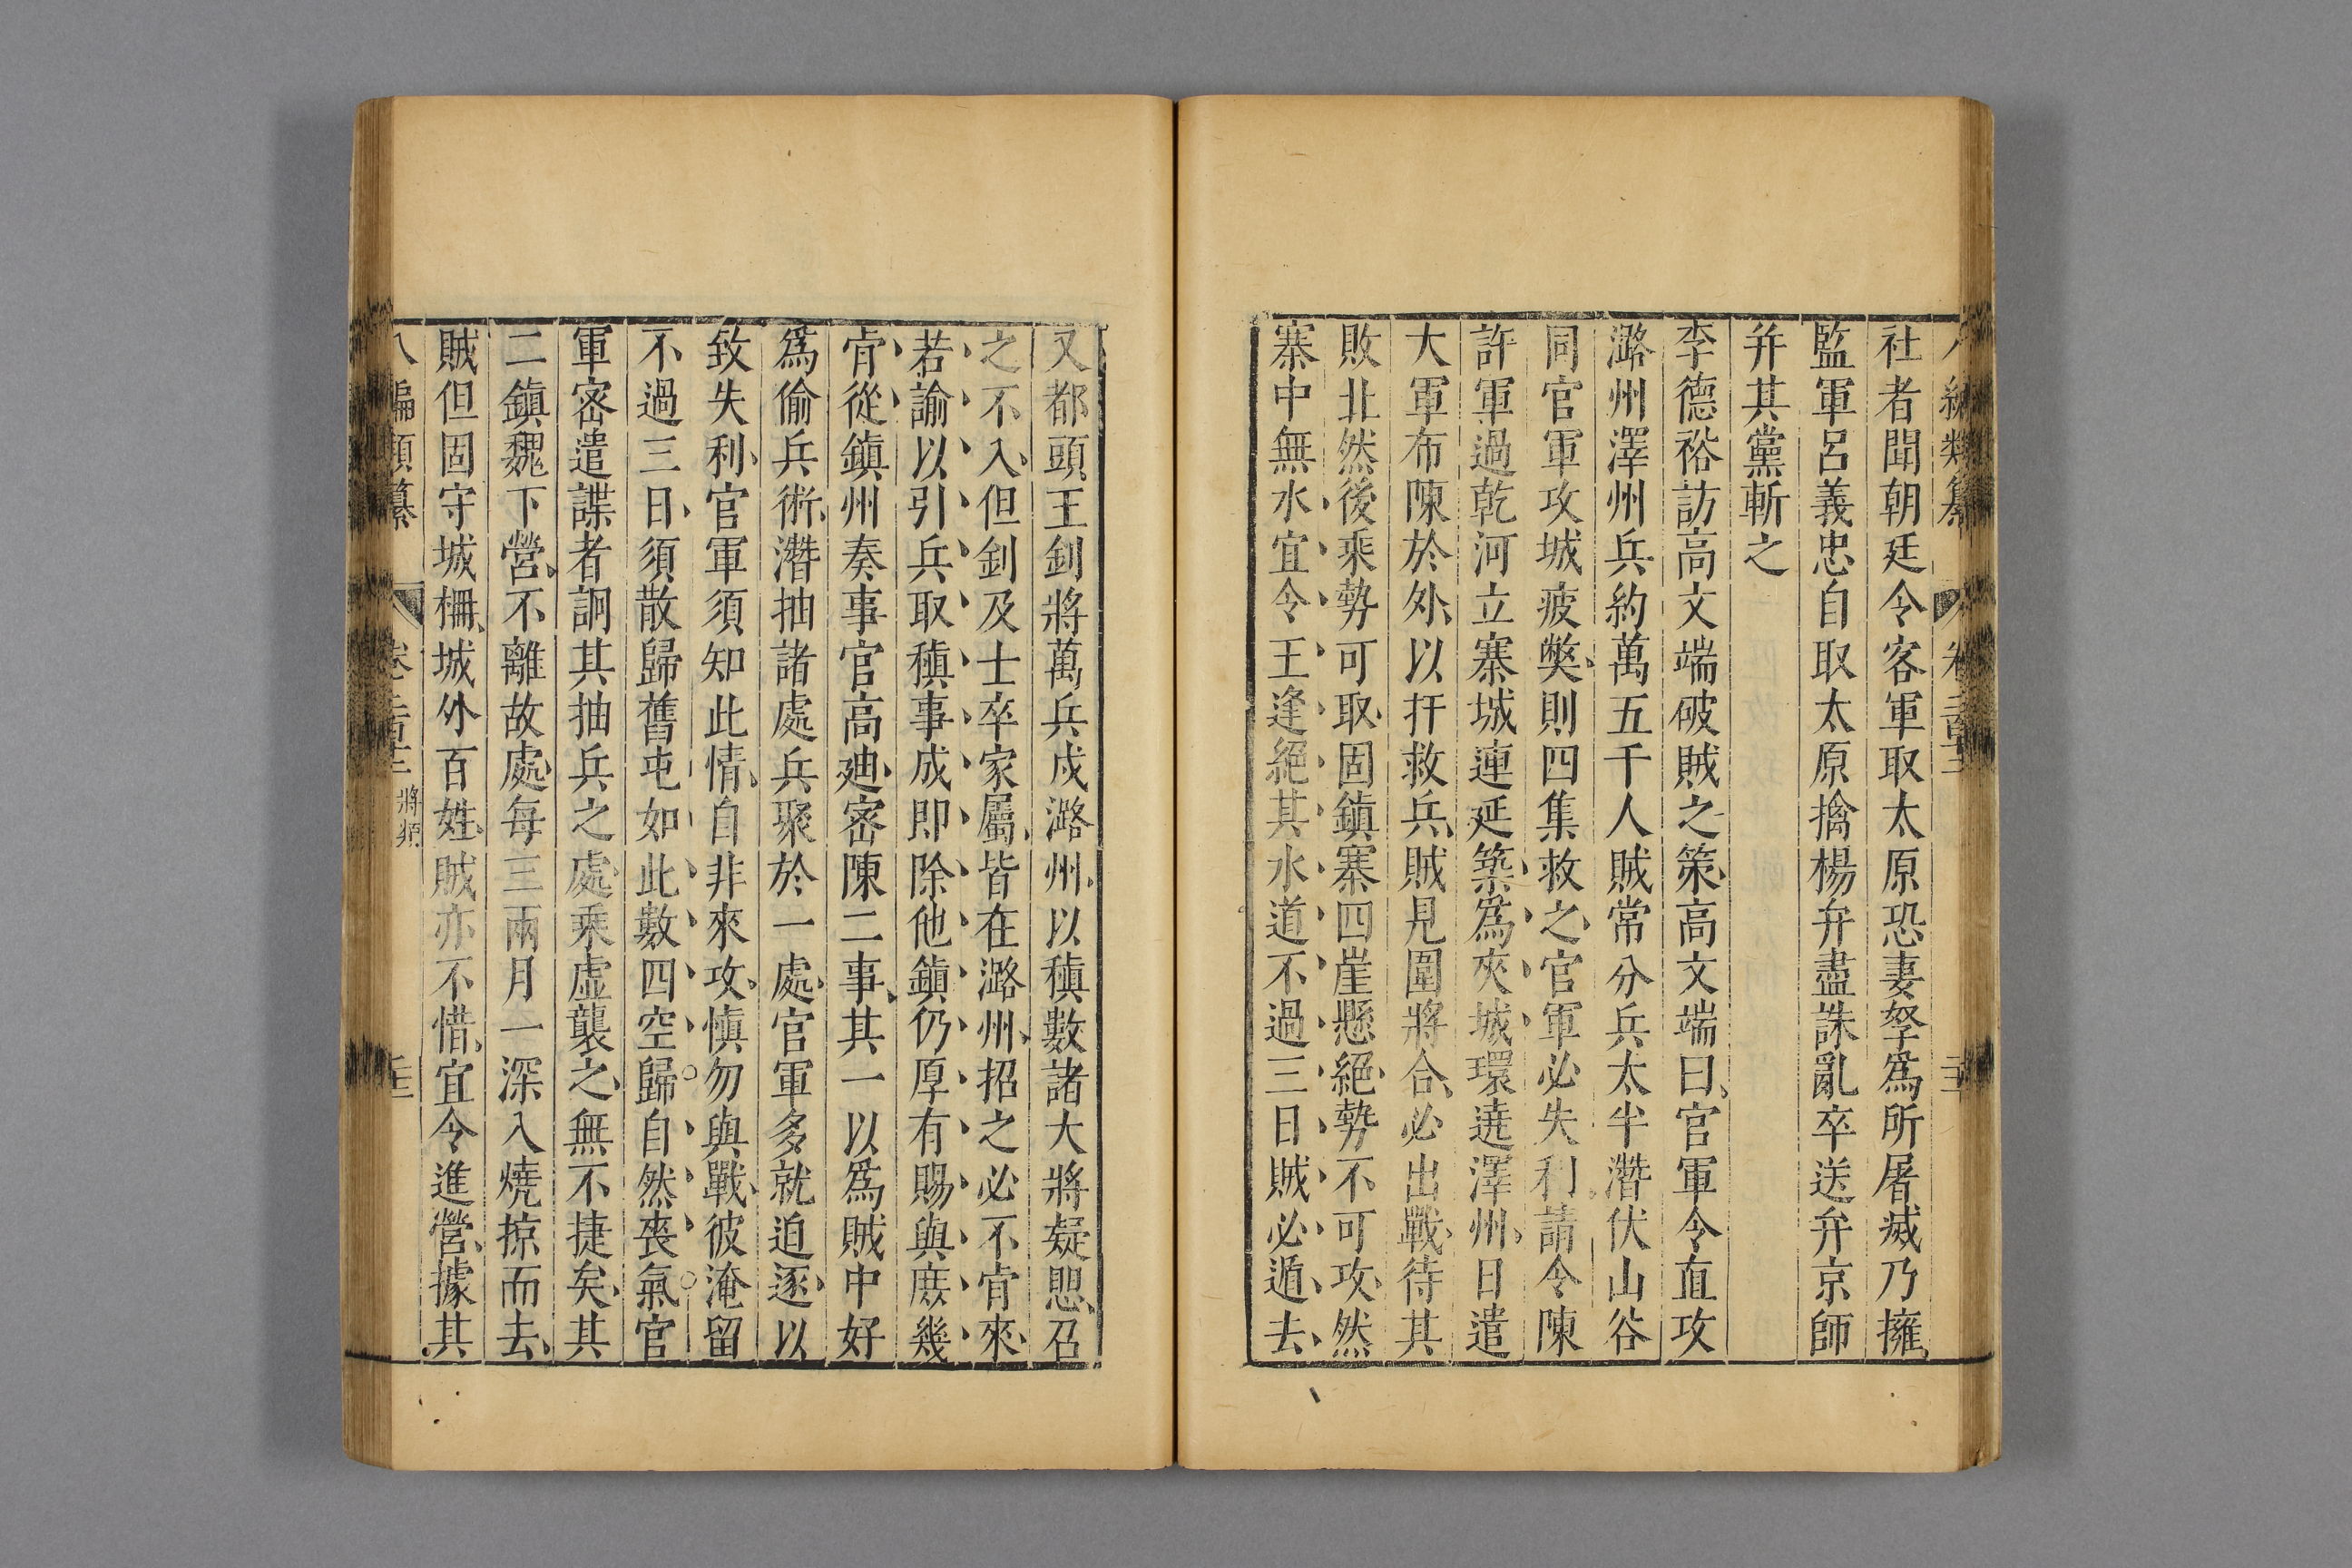 社者聞朝廷令客軍取太原恐妻孥爲所屠滅乃擁
監軍呂義忠自取太原擒楊弁盡誅亂卒送弁京師
并其黨斬之
李德裕訪高文端破賊之策高文端曰官軍令直攻
潞州澤州兵約萬五千人賊常分兵太半潛伏山谷
同官軍攻城疲獘則四集救之官軍必失利請令陳
許軍過乾河立寨城連延築爲夾城環遶澤州日遣
大軍布陳於外以扞救兵賊見圍將合必出戰待其
敗北然後乘勢可取固鎮寨四崖懸絕勢不可攻然
寨中無水宜令王逢絕其水道不過三日賊必遁去
又都頭王釗將萬兵戍潞州以稹數諸大將疑思召
之不入但釗及士卒家屬皆在潞州招之必不肯來
若諭以引兵取稹事成即除他鎮仍厚有賜與庶幾
肯從鎮州奏事官高迪密陳二事其一以爲賊中好
爲偷兵術潛抽諸處兵聚於一處官軍多就迫逐以
致失利官軍須知此情自非來攻慎勿與戰彼淹留
不過三日須散歸舊屯如此數四空歸自然喪氣官
軍密遣諜者詗其抽兵之處乘虛襲之無不捷矣其
二鎮魏下營不離故處每三兩月一深入燒掠而去
賊但固守城柵城外百姓賊亦不惜宜令進營據其
八編類纂 將類